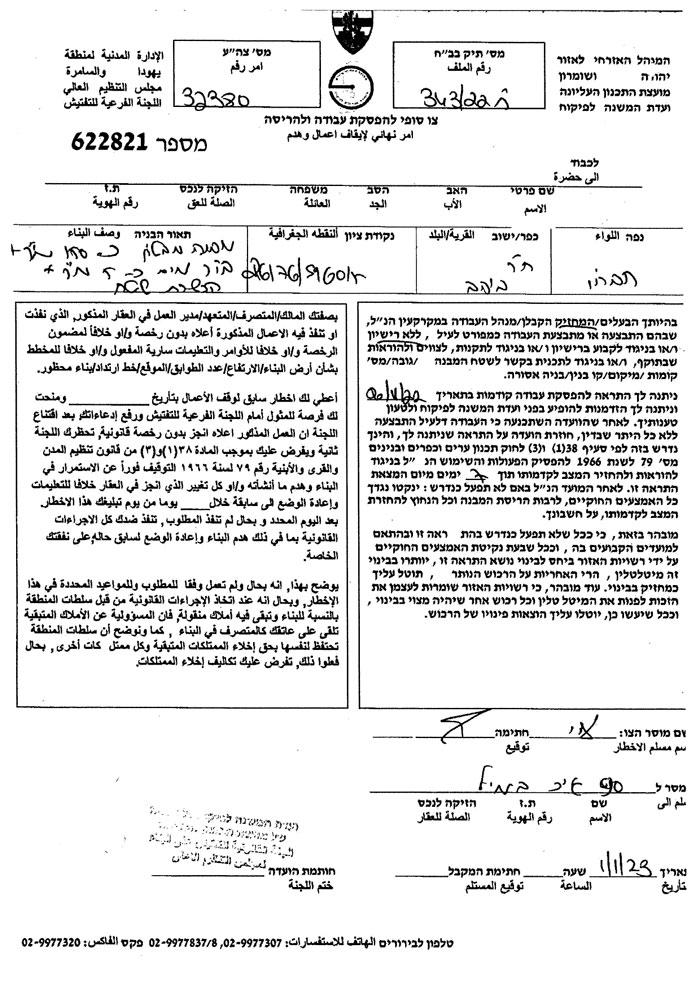 המינהל האזרחי לאזור
יהודה ושומרון
מועצת התכנון העליונה
ועדת המשנה לפיקוח
מס׳ תיק בב״ח
رقم الملف
מס׳ צה״ע
امر رقم
32380
الإدارة المدنية لمنطقة
يهودا والسامرة
مجلس التنظيم العالي
اللجنة الفرعية للتفتيش
צו סופי להפסקת עבודה ולהריסה
امر نهائي لإيقاف اعمال وهدم
מספר 622821
לכבוד
الى حضرة
שם פרטי האב הסב משפחה הזיקה לנכס ת.ז
الاسم الأب الجد العائلة الصلة للعق رقم الهوية
נפה اللواء
כפר/ישוב القرية/البلد
נקודת ציון النقطه الجغرافية
תאור הבניה وصف البناء
חברון
בהיותך הבעלים/המחזיק הקבלן/מנהל העבודה במקרקעין הנ״ל,
שבהם התבצעה או מתבצעת העבודה כמפורט לעיל, ללא רישיון
ו/או בניגוד לקבוע ברישיון ו/או בניגוד לתקנות, לצווים ולהוראות
שבתוקף, ו/או בניגוד לתכנית בקשר לשטח המבנה /גובה/מס׳
קומות /מיקום/קו בנין/בניה אסורה.
ניתנה לך התראה להפסקת עבודה קודמות בתאריך
וניתנה לך הזדמנות להופיע בפני ועדת המשנה לפיקוח ולטעון
טענותיך. לאחר שהוועדה השתכנעה כי העבודה דלעיל התבצעה
ללא כל היתר שבדין, חוזרת הועדה על התראה שניתנה לך, והינך
נדרש בזה לפי סעיף 38(1) ו(3) לחוק תכנון ערים וכפרים ובנינים
מס׳ 79 לשנת 1966 להפסיק הפעולות והשימוש הנ״ל בניגוד
להוראות ולהחזיר המצב לקדמותו תוך ימים מיום המצאת
התראה זו. לאחר המועד הנ״ל באם לא תפעל כנדרש: ינקטו נגדך
כל האמצעים החוקיים, לרבות הריסת המבנה וכל הנחוץ להחזרת
המצב לקדמותו, על חשבונך.
מובהר בזאת, כי ככל שלא תפעל כנדרש בהת ראה זו ובהתאם
למועדים הקבועים בה, וככל שבעת נקיטת האמצעים החוקיים
על ידי רשויות האזור ביחס לבינוי נושא התראה זו, יוותרו בבינוי
זה מיטלטלין, הרי האחריות על הרכוש הנותר, תוטל עליך
כמחזיק בבינוי. עוד מובהר, כי רשויות האזור שומרות לעצמן את
הזכות לפנות את המיטלטלין וכל רכוש אחר שיהיה מצוי בבינוי,
וככל שיעשו כן, יוטלו עליך התצאות פינויו של הרכוש.
بصفتك المالك/المتصرف/المتعهد/مدير العمل في العقار المذكور, الذي نفذت
او تنفذ فيه الاعمال المذكورة أعلاه بدون رخصة و/او خلافاً لمضمون
الرخصة و/او خلافا للأوامر والتعليمات سارية المفعول و/او خلافا للمخطط
بشأن أرض البناء/الارتفاع/عدد الطوابق/الموقع/خط ارتداد/بناء محظور.
أعطي لك اخطار سابق لوقف الأعمال بتأريخ ومنحت
لك فرصة للمثول أمام اللجنة الفرعية للتفتيش ورفع إدعاءاتك. بعد اقتناع
اللجنة ان العمل المذكور اعلاه انجز بدون رخصة قانونية, تحظرك اللجنة
ثانية ويفرض عليك بموجب المادة ٣٨(١) و(٣) من قانون تنظيم المدن
والقرى والأبنية رقم ٧٩ لسنة ١٩٦٦ التوقيف فوراً عن الاستمرار في
البناء وهدم ما أنشأته و/او كل تغيير الذي انجز في العقار خلافا للتعليمات
وإعادة الوضع الى سابقة خلال يوما من يوم تبليغك هذا الاخطار.
بعد اليوم المحدد و بحال لم تنفذ المطلوب, تنفذ ضدك كل الاجراءات
القانونية بما في ذلك هدم البناء وإعادة الوضع لسابق حاله, على نفقتك
الخاصة.
يوضح بهذا, انه بحال ولم تعمل وفقا للمطلوب وللمواعيد المحددة في هذا
الإخطار, وبحال انه عند اتخاذ الإجراءات القانونية من قبل سلطات المنطقة
بالنسبة للبناء وتبقى فيه أملاك منقولة, فان المسؤولية عن الأملاك المتبقية
تلقى على عاتقك كالمتصرف في البناء, كما ونوضح أن سلطات المنطقة
تحتفظ لنفسها بحق إخلاء الممتلكات المتبقية وكل ممتل كات أخرى, بحال
فعلوا ذلك, تفرض عليك تكاليف إخلاء الممتلكات.
שם מוסר הצו: חתימה
سم مسلم الاخطار توقيع
מסר ל
سلم الى
שם ת.ז הזיקה לנכס
الاسم رقم الهوية الصلة للعقار
תאריך 1/1/23 שעה חתימת המקבל
تأريخ الساعة توقيع المستلم
חותמת הועדה
ختم اللجنة
טלפון לבירורים الهاتف للاستفسارات: 02-9977307, 02-9977837/8 פקס الفاكس: 02-9977320